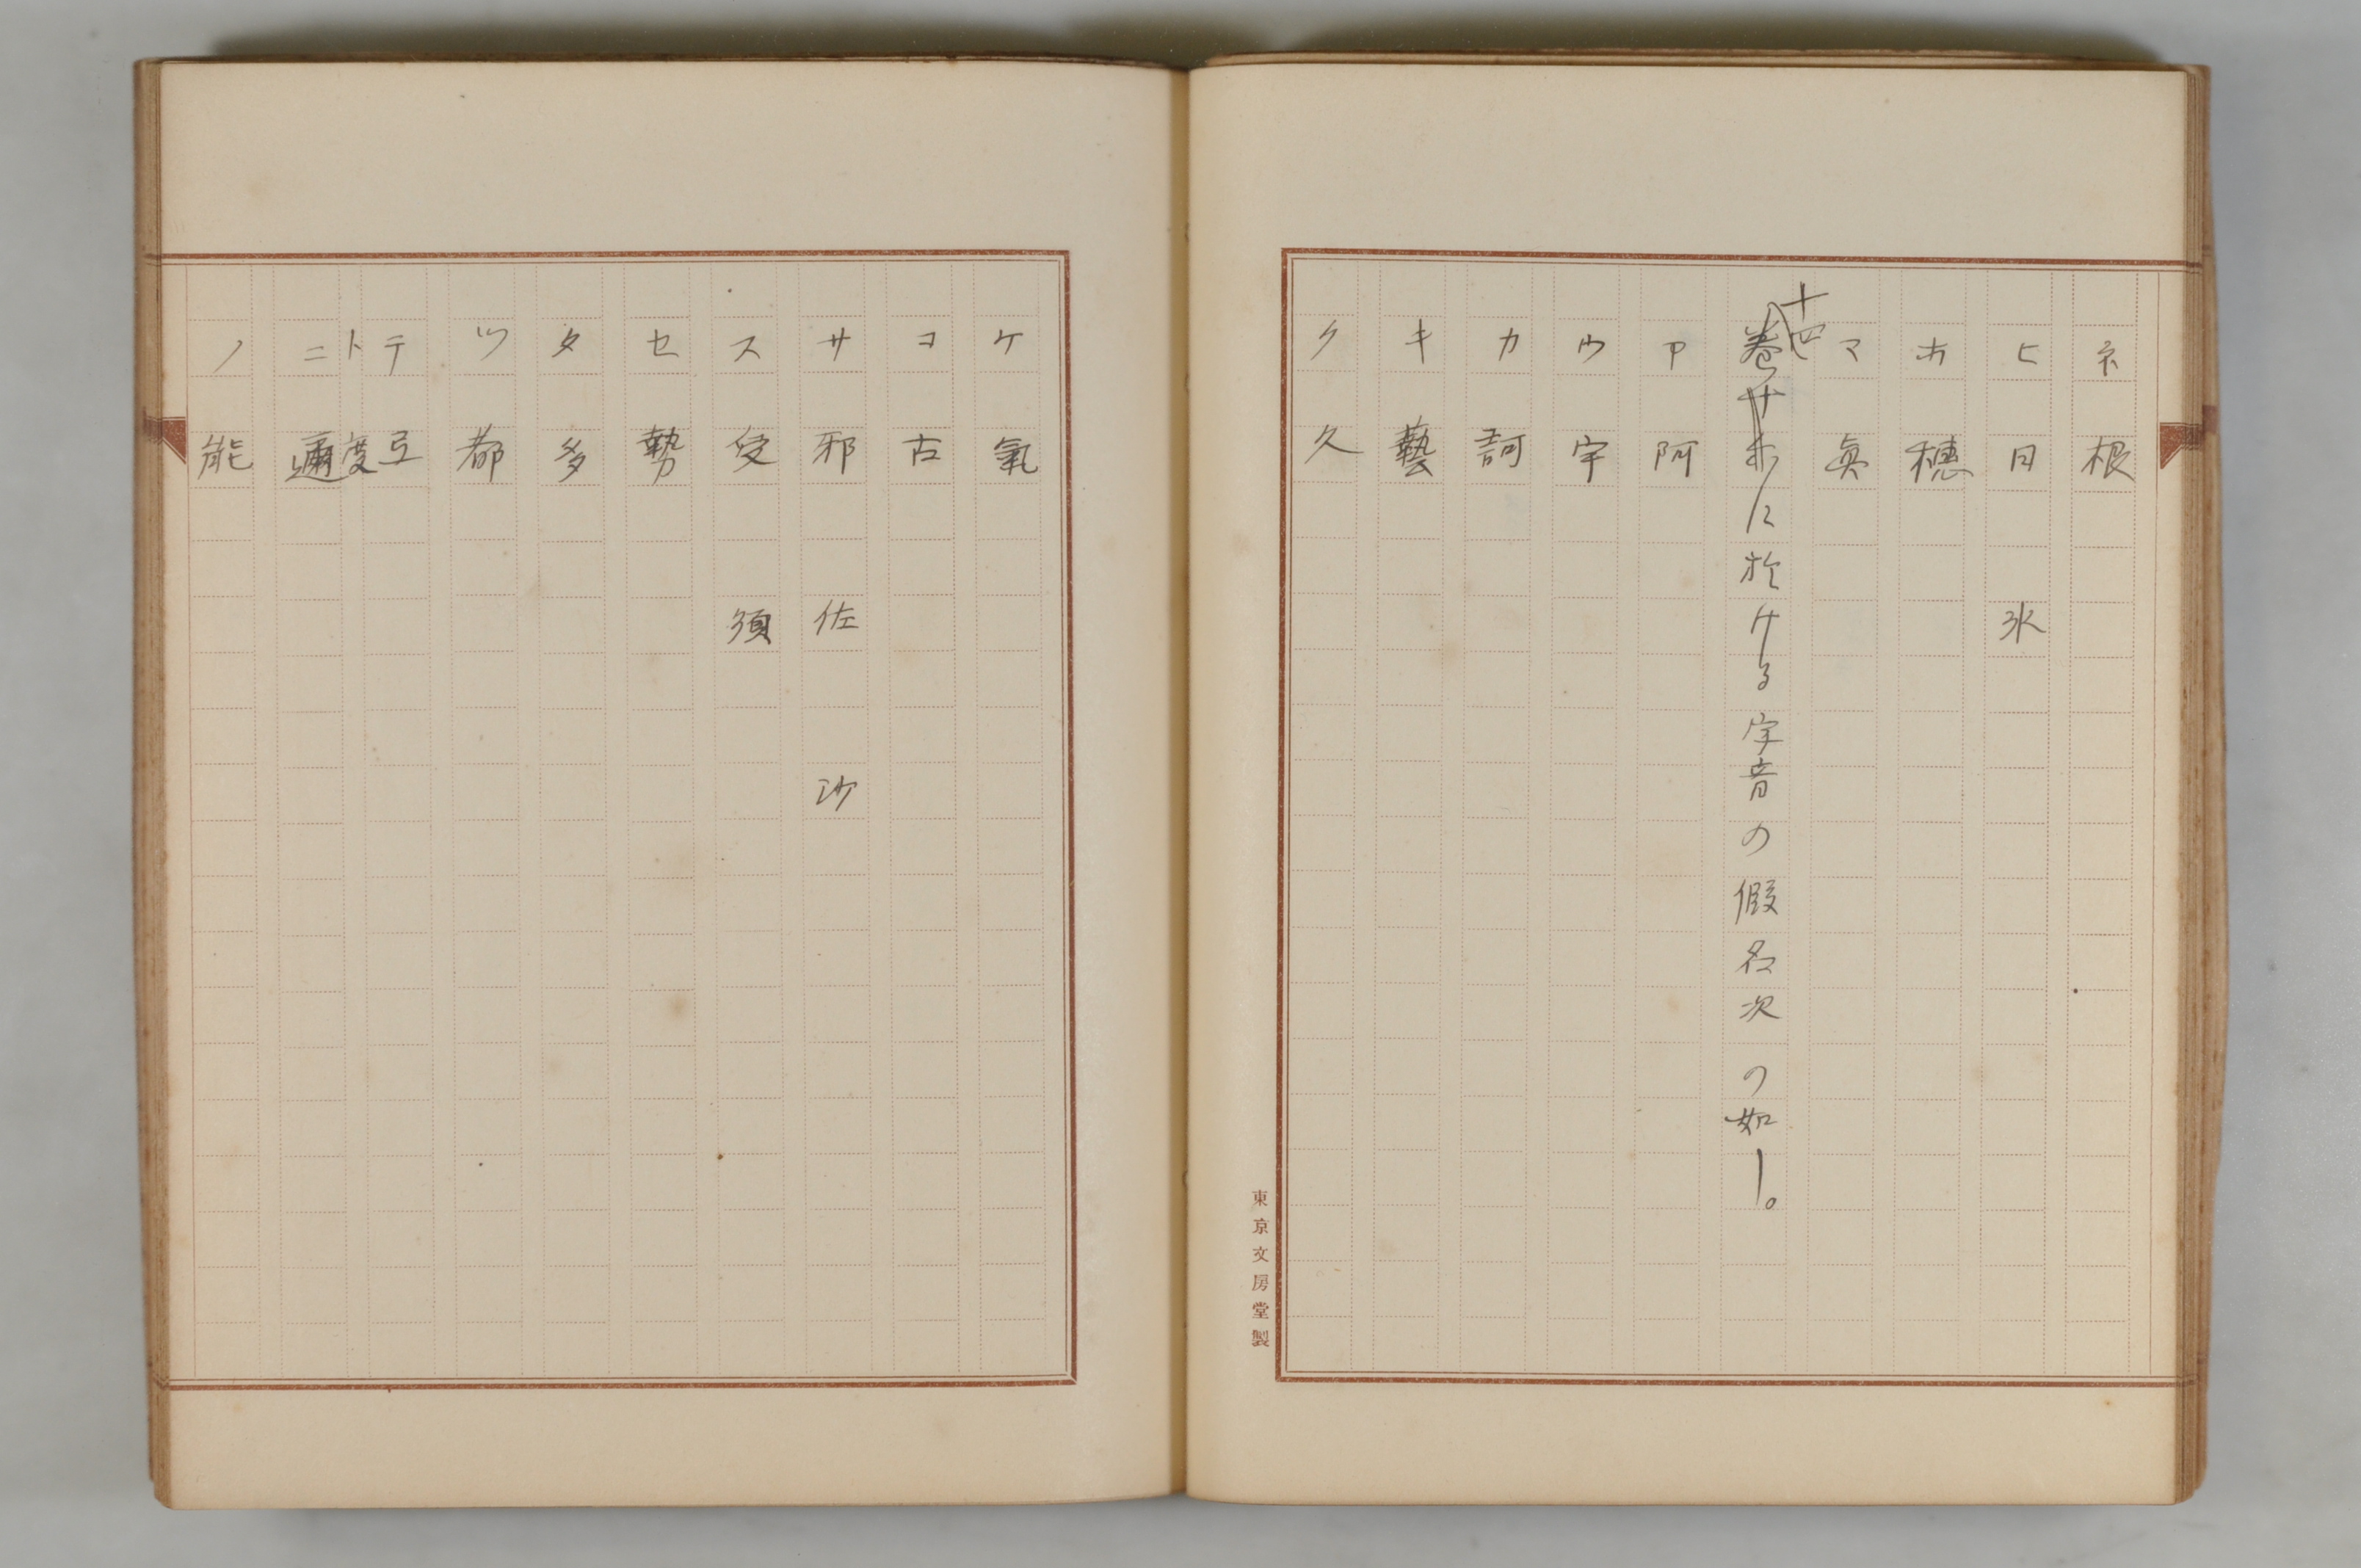 ネ 根
ヒ 日 氷
ホ 穗
マ 眞
十四
卷廿に於ける字音の假名次の如し。
ア 阿
ウ 宇
カ 訶
キ 藝
ク 久
東京文房堂製
ケ 氣
コ 古
サ 邪 佐 沙
ス 受 須
セ 勢
タ 多
ツ 都
テ 弖
ト 度
ニ 邇
ノ 能